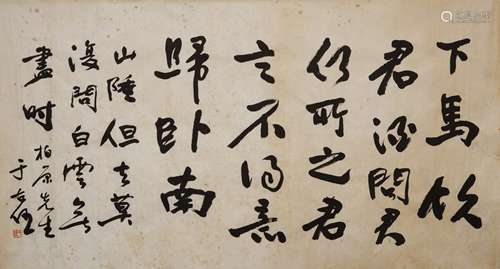 下馬飲
君酒問君
何所之君
言不得意
歸卧南
山陲但去莫
復問白雲無
盡時 柏原先生
于右任